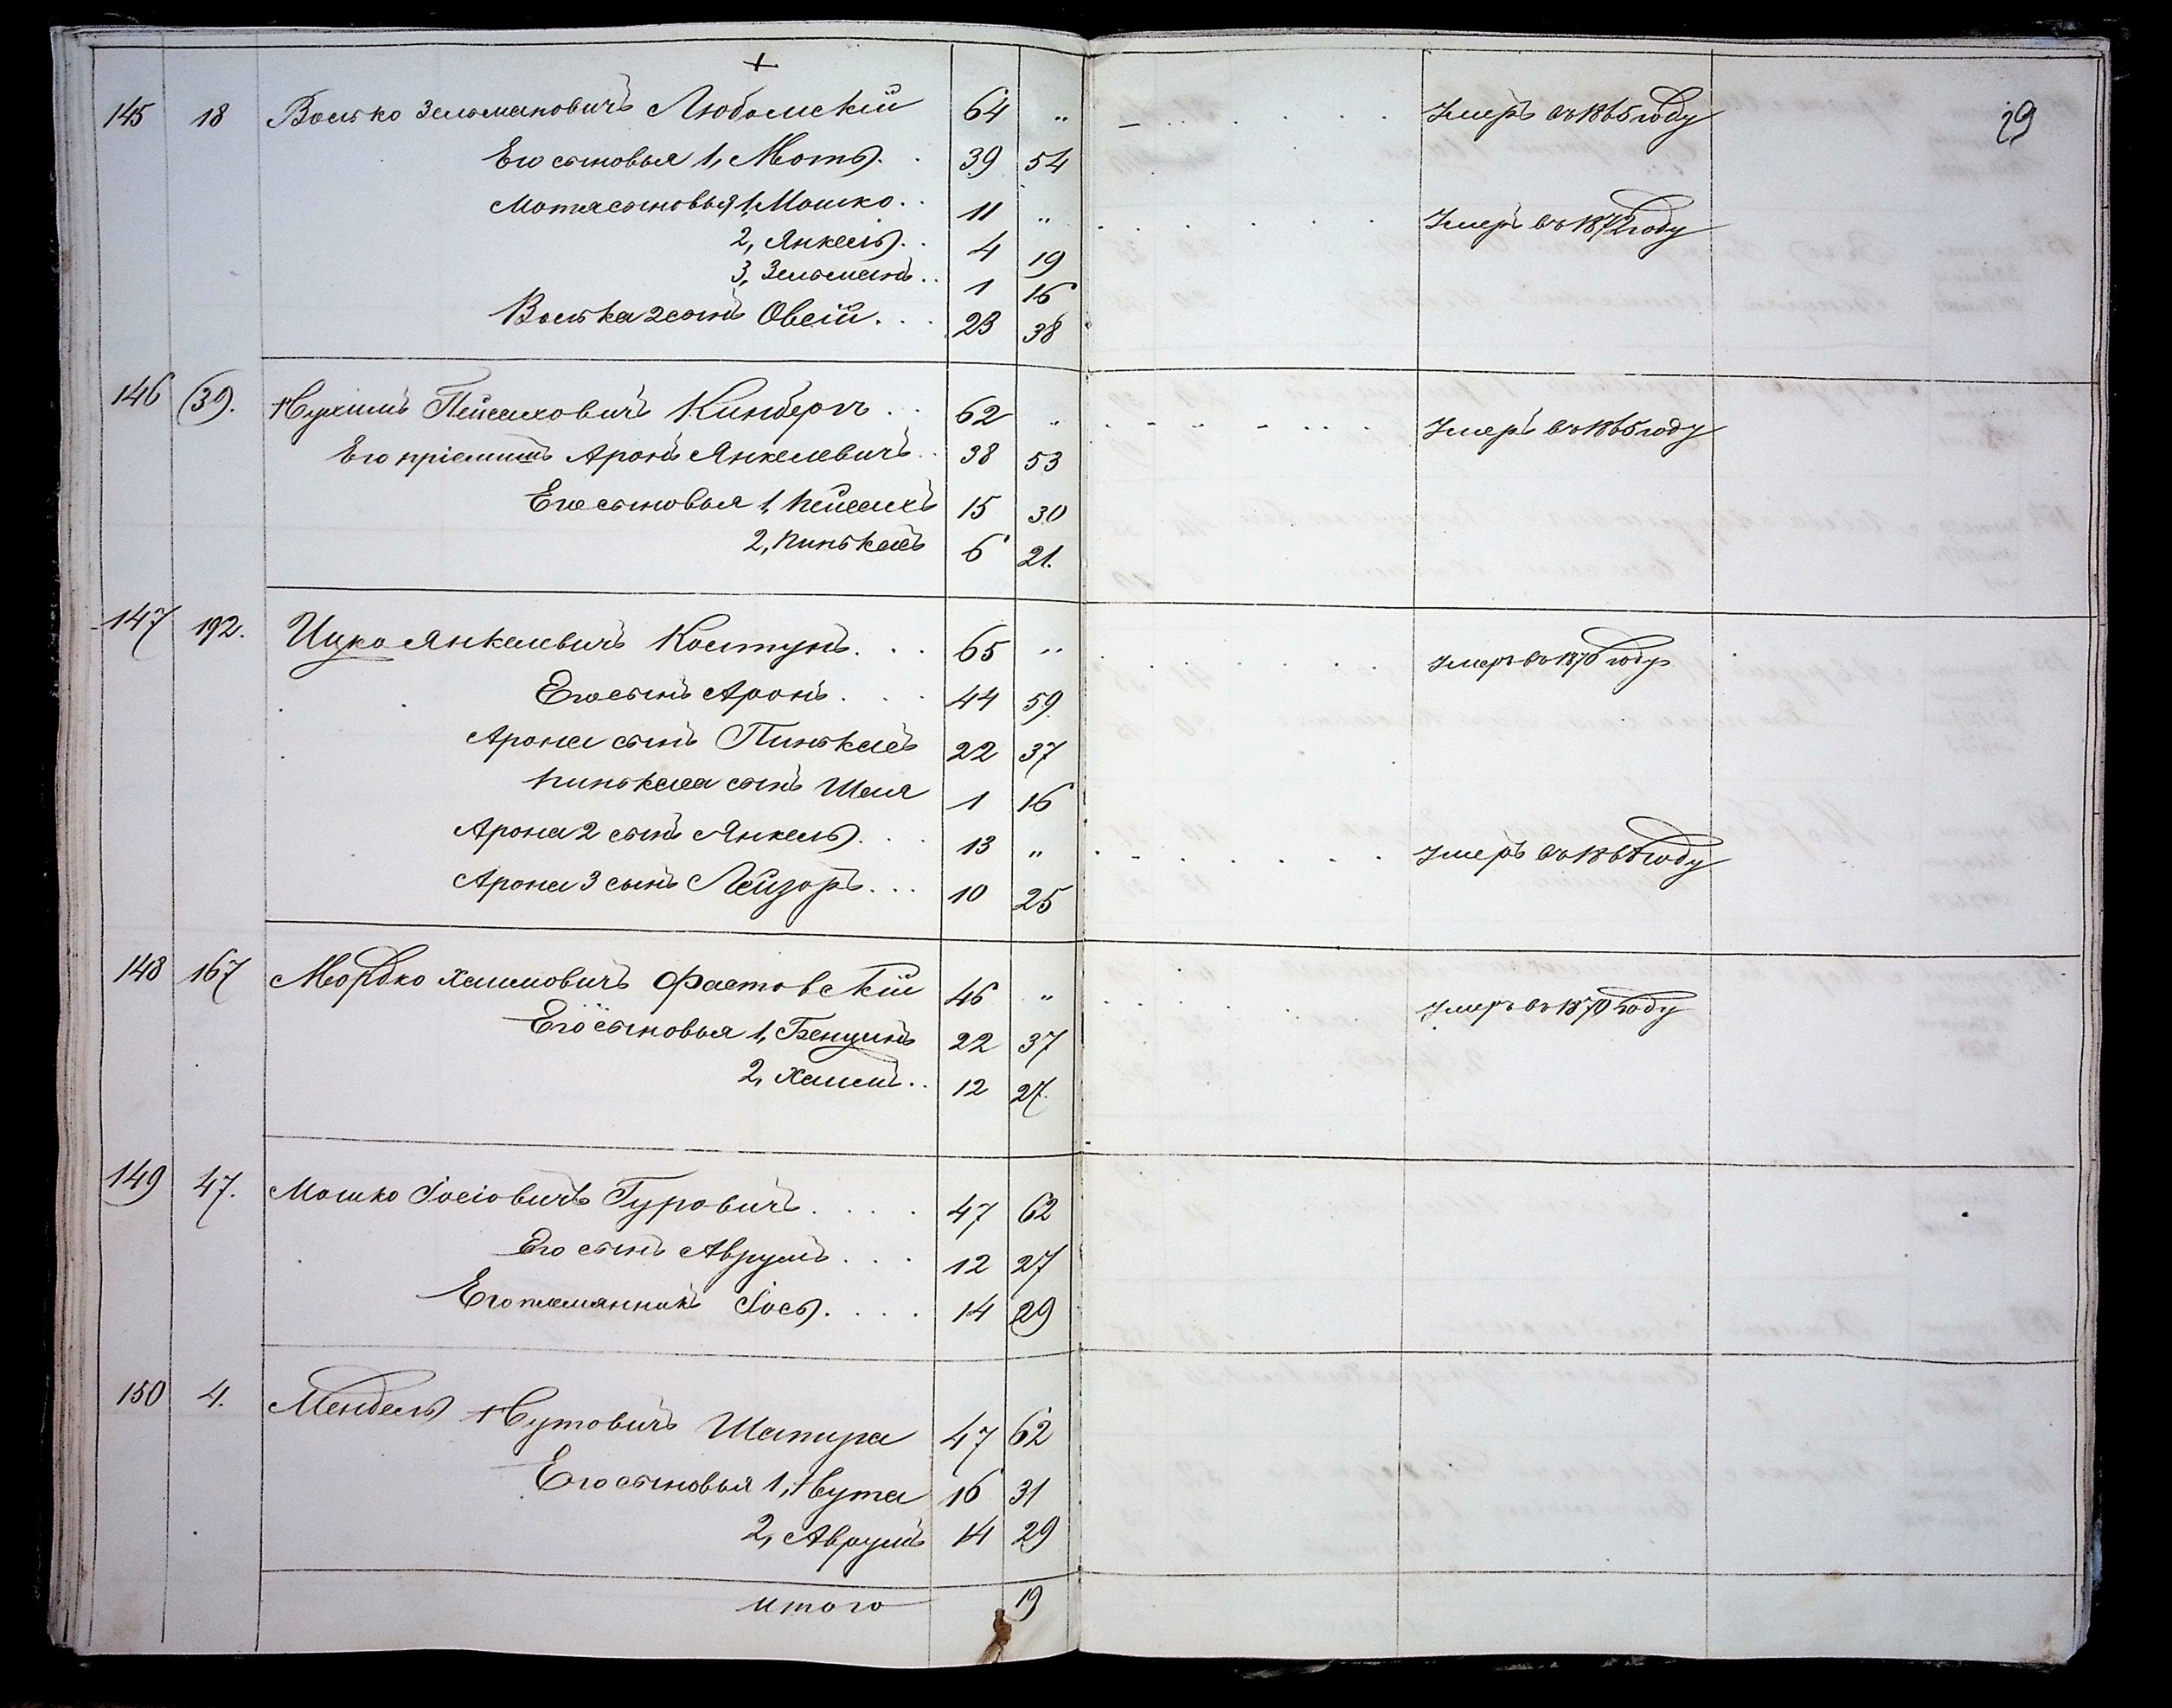 +
29
145 18 Волько Зельмановичъ Любомскій 64 „ Умеръ въ 1865 году
Его сыновья 1, Моть 39 54
Мотя сыновья 1, Мошко 11 „ Умеръ въ 1872 году
2, Янкель 4 19
3, Зельманъ 1 16
Волька 2 сынъ Овсій 23 38
146 (39). Нухимъ Пейсаховичъ Кинбергъ 62 „ Умеръ въ 1865 году
Его пріемышъ Аронъ Янкелевичъ 38 53
Его сыновья 1, Пейсахъ 15 30
2, Пинькасъ 6 21.
147 192. Ицко Янкелевичъ Костунъ 65 „ Умеръ въ 1870 году
Его сынъ Аронъ 44 59
Арона сынъ Пинькасъ 22 37
Пинькаса сынъ Шая 1 16
Арона 2 сынъ Янкель 13 „ Умеръ въ 1868 году
Арона 3 сынъ Лейзоръ 10 25
148 167 Мордко Хаимовичъ Фастовскій 46 „ Умеръ въ 1870 году
Его сыновья 1, Бенцинъ 22 37
2, Хаимъ 12 27.
149 47. Мошко Іосіовичъ Гуровичъ 47 62
Его сынъ Аврумъ 12 27
Его племянникъ Іось 14 29
150 4. Мендель Нутовичъ Шапира 47 62
Его сыновья 1, Нута 16 31
2, Аврумъ 14 29
Итого 19